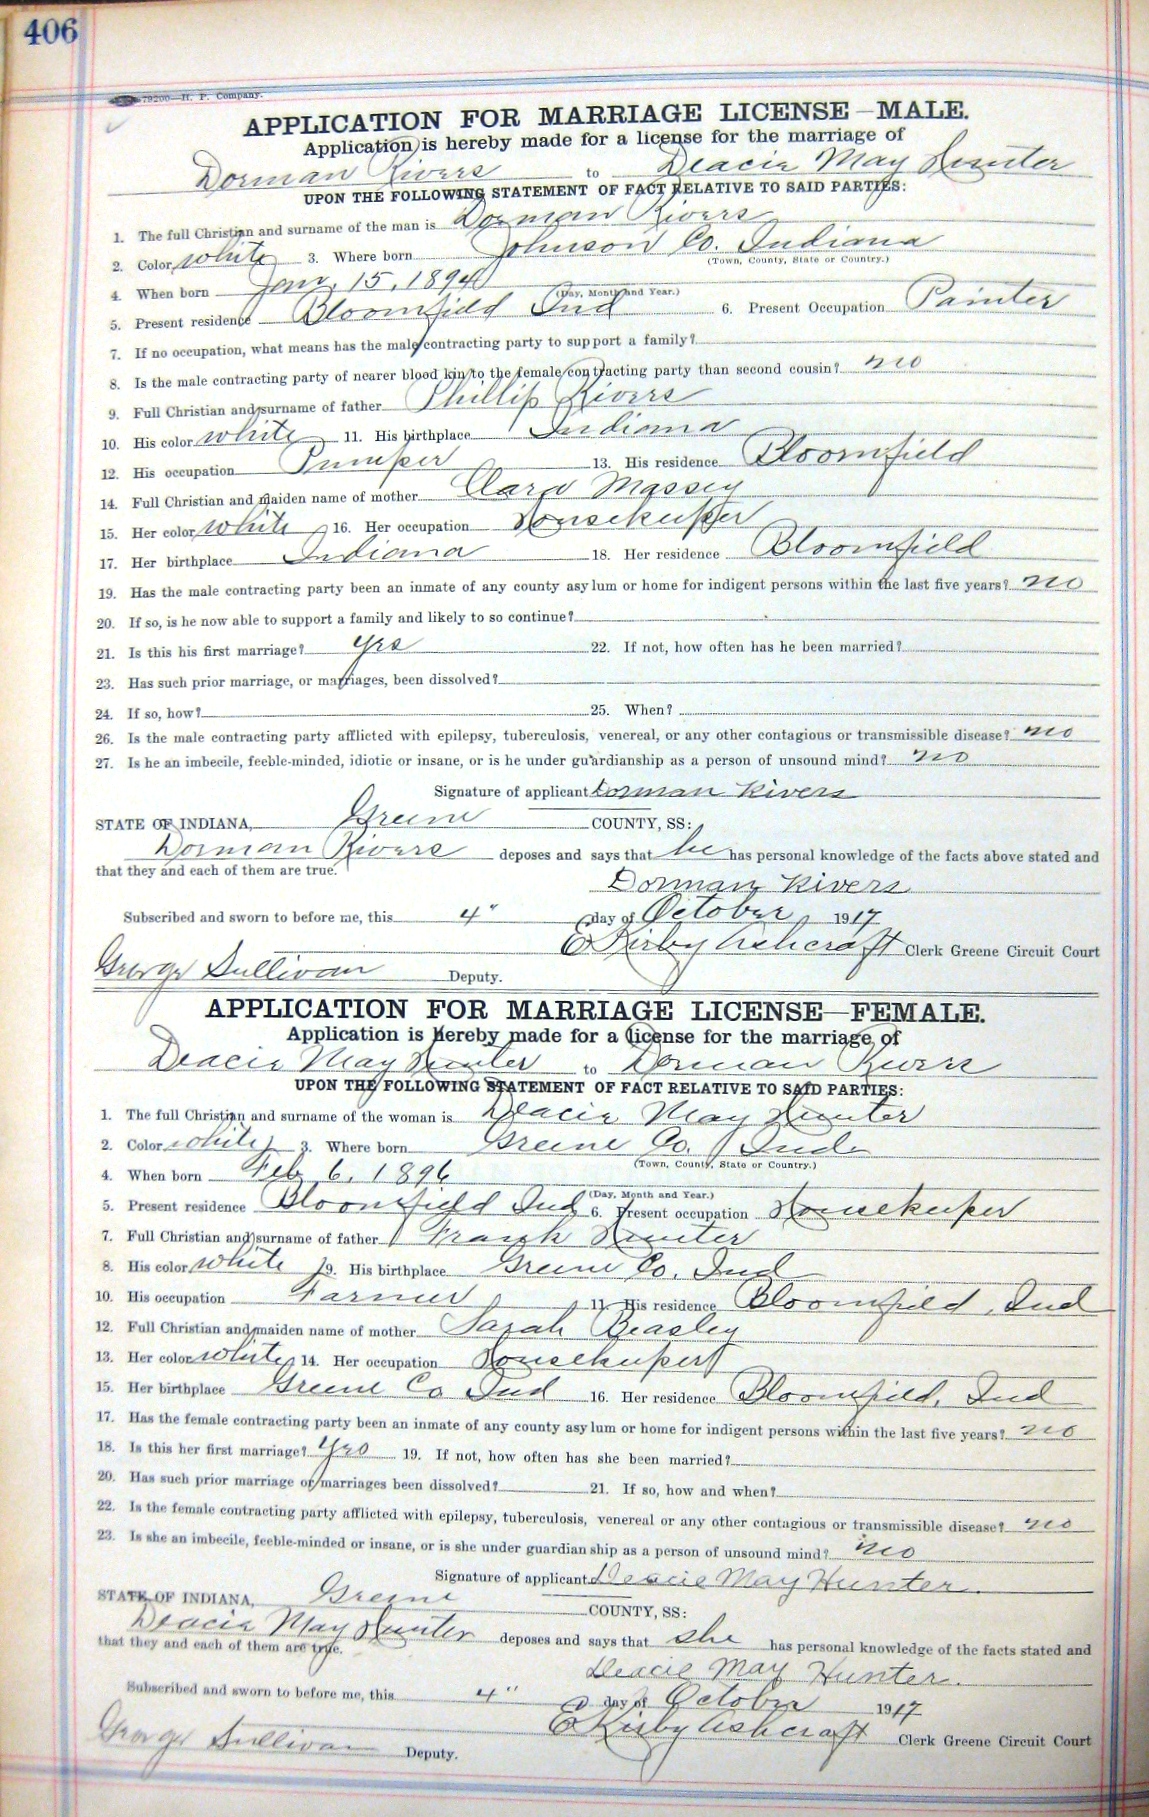 406
79200—H. P. Company.
APPLICATION FOR MARRIAGE LICENSE—MALE.
Application is hereby made for a license for the marriage of
Dorman Rivers to Deacie May Hunter
UPON THE FOLLOWING STATEMENT OF FACT RELATIVE TO SAID PARTIES:
1. The full Christian and surname of the man is Dorman Rivers
2. Color white 3. Where born Johnson Co. Indiana
(Town, County, State or Country.)
4. When born Jan. 15, 1894
(Day, Month and Year.)
5. Present residence Bloomfield Ind 6. Present Occupation Painter
7. If no occupation, what means has the male contracting party to support a family?
8. Is the male contracting party of nearer blood kin to the female contracting party than second cousin? no
9. Full Christian and surname of father Phillip Rivers
10. His color white 11. His birthplace Indiana
12. His occupation Pumper 13. His residence Bloomfield
14. Full Christian and maiden name of mother Clara Massey
15. Her color white 16. Her occupation Housekeeper
17. Her birthplace Indiana 18. Her residence Bloomfield
19. Has the male contracting party been an inmate of any county asylum or home for indigent persons within the last five years? no
20. If so, is he now able to support a family and likely to so continue?
21. Is this his first marriage? yes 22. If not, how often has he been married?
23. Has such prior marriage, or marriages, been dissolved?
24. If so, how? 25. When?
26. Is the male contracting party afflicted with epilepsy, tuberculosis, venereal, or any other contagious or transmissible disease? no
27. Is he an imbecile, feeble-minded, idiotic or insane, or is he under guardianship as a person of unsound mind? no
Signature of applicant Dorman Rivers
STATE OF INDIANA, Greene COUNTY, SS:
Dorman Rivers deposes and says that he has personal knowledge of the facts above stated and
that they and each of them are true.
Dorman Rivers
Subscribed and sworn to before me, this 4" day of October 1917
E Kirby Ashcraft Clerk Greene Circuit Court
George Sullivan Deputy.
APPLICATION FOR MARRIAGE LICENSE—FEMALE.
Application is hereby made for a license for the marriage of
Deacie May Hunter to Dorman Rivers
UPON THE FOLLOWING STATEMENT OF FACT RELATIVE TO SAID PARTIES:
1. The full Christian and surname of the woman is Deacie May Hunter
2. Color white 3. Where born Greene Co. Ind
(Town, County, State or Country.)
4. When born Feb 6, 1896
(Day, Month and Year.)
5. Present residence Bloomfield Ind 6. Present occupation Housekeeper
7. Full Christian and surname of father Frank Hunter
8. His color white 9. His birthplace Greene Co. Ind
10. His occupation Farmer 11. His residence Bloomfield, Ind
12. Full Christian and maiden name of mother Sarah Beasley
13. Her color white 14. Her occupation Housekeeper
15. Her birthplace Greene Co Ind 16. Her residence Bloomfield, Ind
17. Has the female contracting party been an inmate of any county asylum or home for indigent persons within the last five years? no
18. Is this her first marriage? yes 19. If not, how often has she been married?
20. Has such prior marriage or marriages been dissolved? 21. If so, how and when?
22. Is the female contracting party afflicted with epilepsy, tuberculosis, venereal or any other contagious or transmissible disease? no
23. Is she an imbecile, feeble-minded or insane, or is she under guardianship as a person of unsound mind? no
Signature of applicant Deacie May Hunter.
STATE OF INDIANA, Greene COUNTY, SS:
Deacie May Hunter deposes and says that she has personal knowledge of the facts stated and
that they and each of them are true.
Deacie May Hunter.
Subscribed and sworn to before me, this 4" day of October 1917
E Kirby Ashcraft Clerk Greene Circuit Court
George Sullivan Deputy.